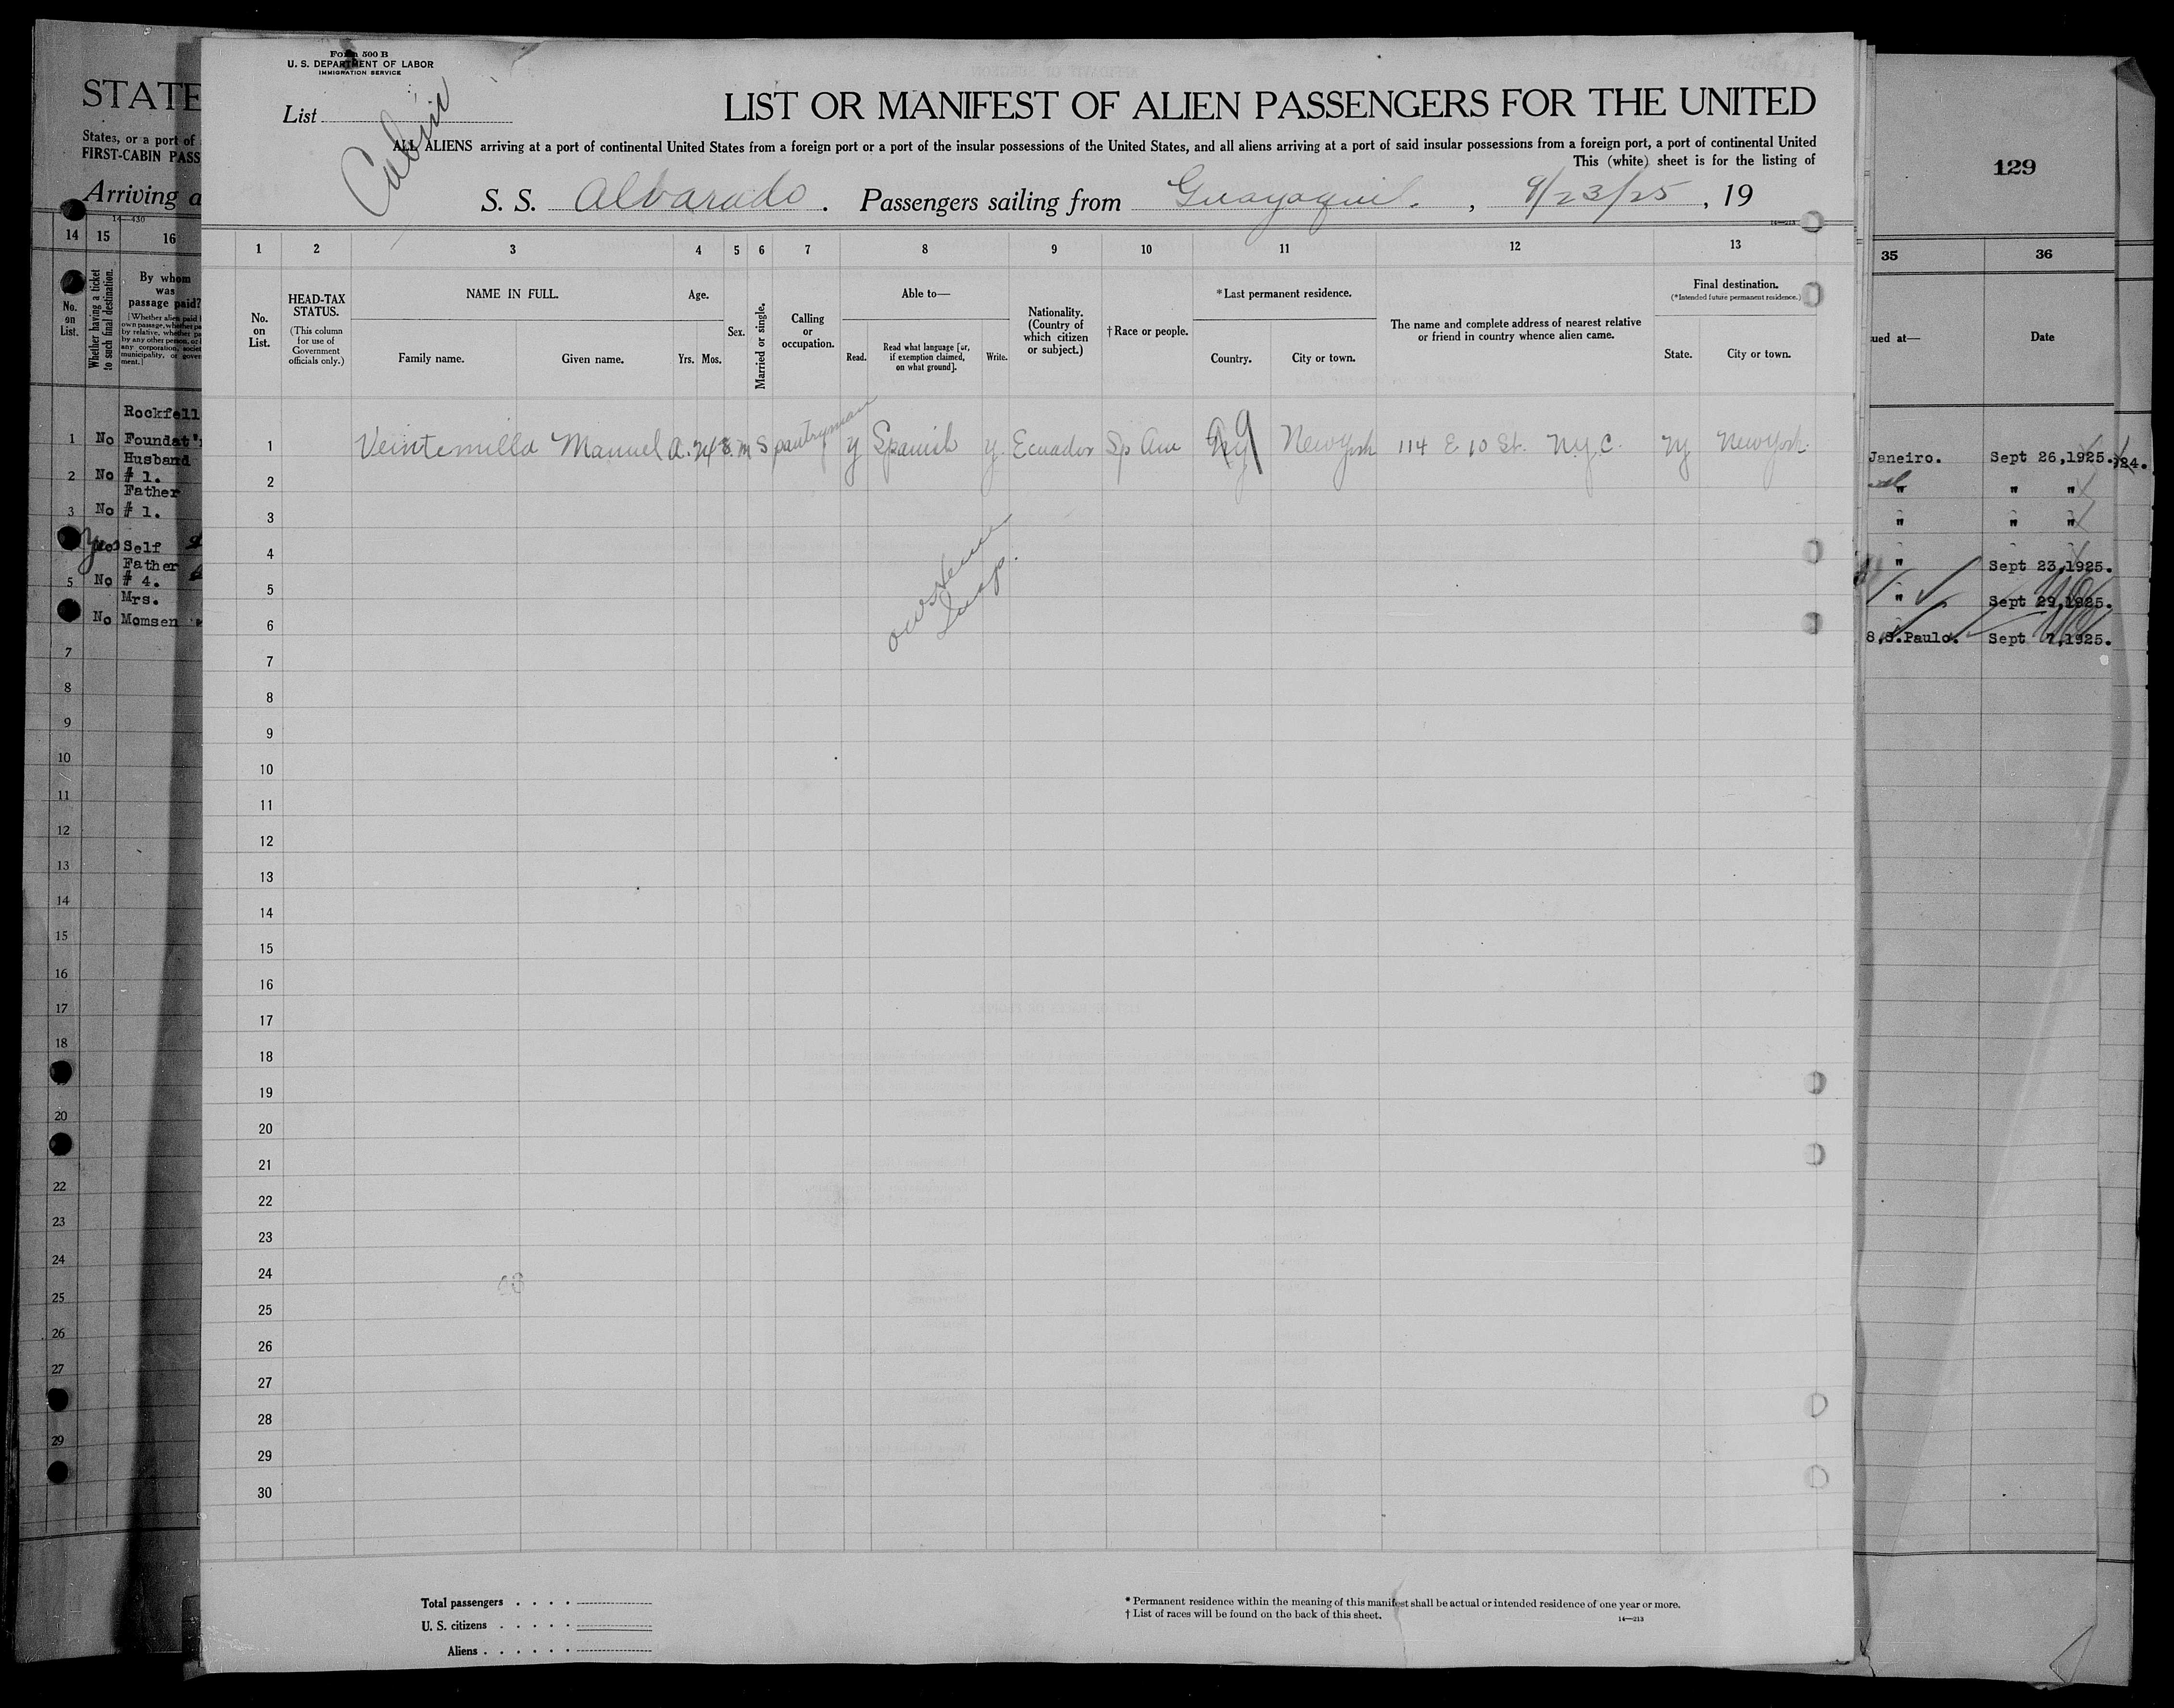 STATE
States, or a port of
FIRST-CABIN PASS
Arriving a
14—430
14 15 16
No. on List.
Whether having a ticket to such final destination.
By whom was passage paid?
1 No Rockfell
Foundat'
2 No Husband
# 1.
3 No Father
# 1.
Self
5 No Father
# 4.
No Mrs.
Momsen
7
8
9
10
11
12
13
14
15
16
17
18
20
22
23
24
25
26
27
29
Form 500 B
U. S. DEPARTMENT OF LABOR
IMMIGRATION SERVICE
List
Cabin
LIST OR MANIFEST OF ALIEN PASSENGERS FOR THE UNITED
ALL ALIENS arriving at a port of continental United States from a foreign port or a port of the insular possessions of the United States, and all aliens arriving at a port of said insular possessions from a foreign port, a port of continental United
This (white) sheet is for the listing of
S. S. Alvarado. Passengers sailing from Guayaquil. , 9/23/25 , 19
14—213
1 2 3 4 5 6 7 8 9 10 11 12 13
No. on List.
HEAD-TAX STATUS.
(This column for use of Government officials only.)
NAME IN FULL.
Family name. Given name.
Age.
Yrs. Mos.
Sex.
Married or single.
Calling or occupation.
Able to—
Read. Read what language [or, if exemption claimed, on what ground]. Write.
Nationality. (Country of which citizen or subject.)
†Race or people.
*Last permanent residence.
Country. City or town.
The name and complete address of nearest relative or friend in country whence alien came.
Final destination.
(*Intended future permanent residence.)
State. City or town.
1 Veintemilla Manuel A. 24 8. m S pantryman y Spanish y. Ecuador Sp Am NY New York 114 E 10 St. N.Y.C. NY New York.
2
3
4
5
6
7
8
9
10
11
12
13
14
15
16
17
18
19
20
21
22
23
24
25
26
27
28
29
30
Insp.
Total passengers . . . .
U. S. citizens . . . . .
Aliens . . . . . .
* Permanent residence within the meaning of this manifest shall be actual or intended residence of one year or more.
† List of races will be found on the back of this sheet.
14—213
129
35 36
ued at— Date
Janeiro. Sept 26,1925.
24.
" " "
" " "
" Sept 23,1925.
" Sept 29,1925.
8,S.Paulo. Sept 7,1925.